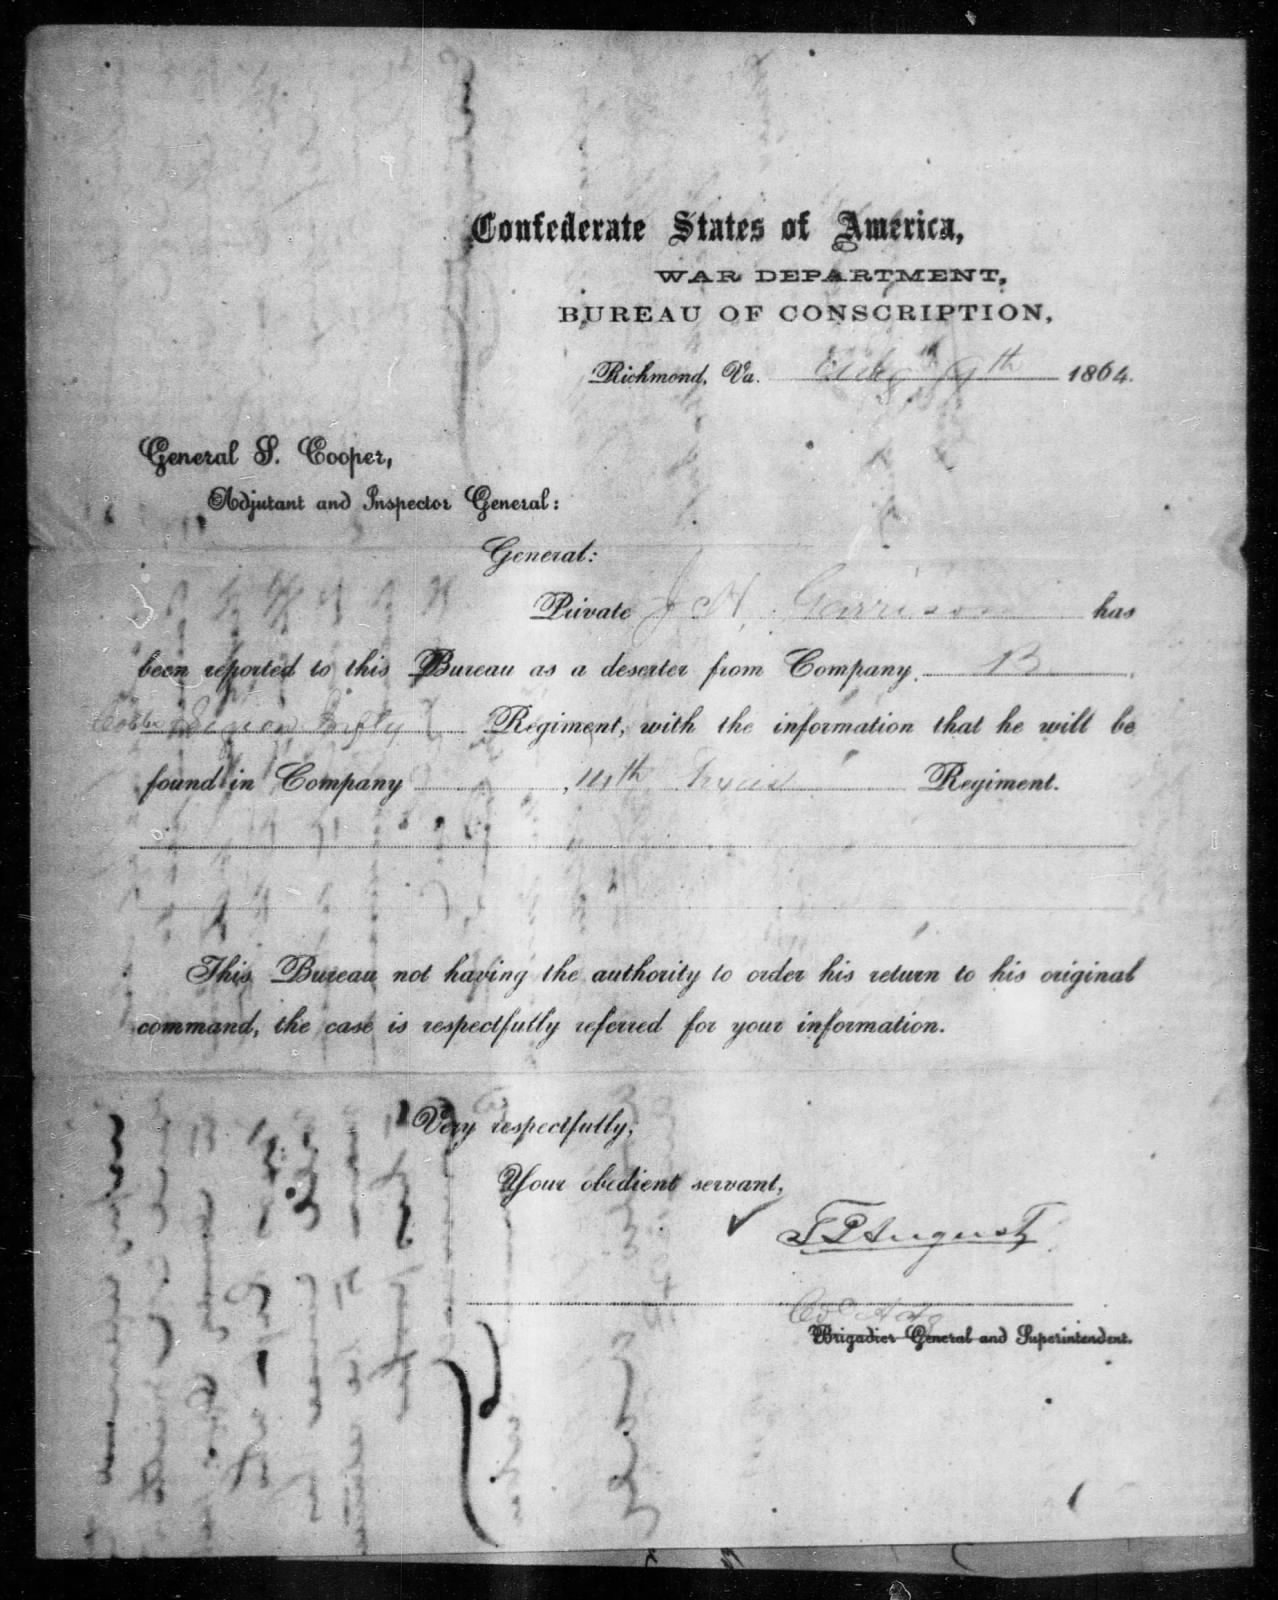 Confederate States of America,
WAR DEPARTMENT,
BUREAU OF CONSCRIPTION,
Richmond, Va. Aug 19th 1864.
General S. Cooper,
Adjutant and Inspector General:
General:
Private J H Garrison has
been reported to this Bureau as a deserter from Company B
Cobbs Legion Infty Regiment, with the information that he will be
found in Company , 14th Regiment.
This Bureau not having the authority to order his return to his original
command, the case is respectfully referred for your information.
Very respectfully,
Your obedient servant,
T P August
Col
Brigadier General and Superintendent.